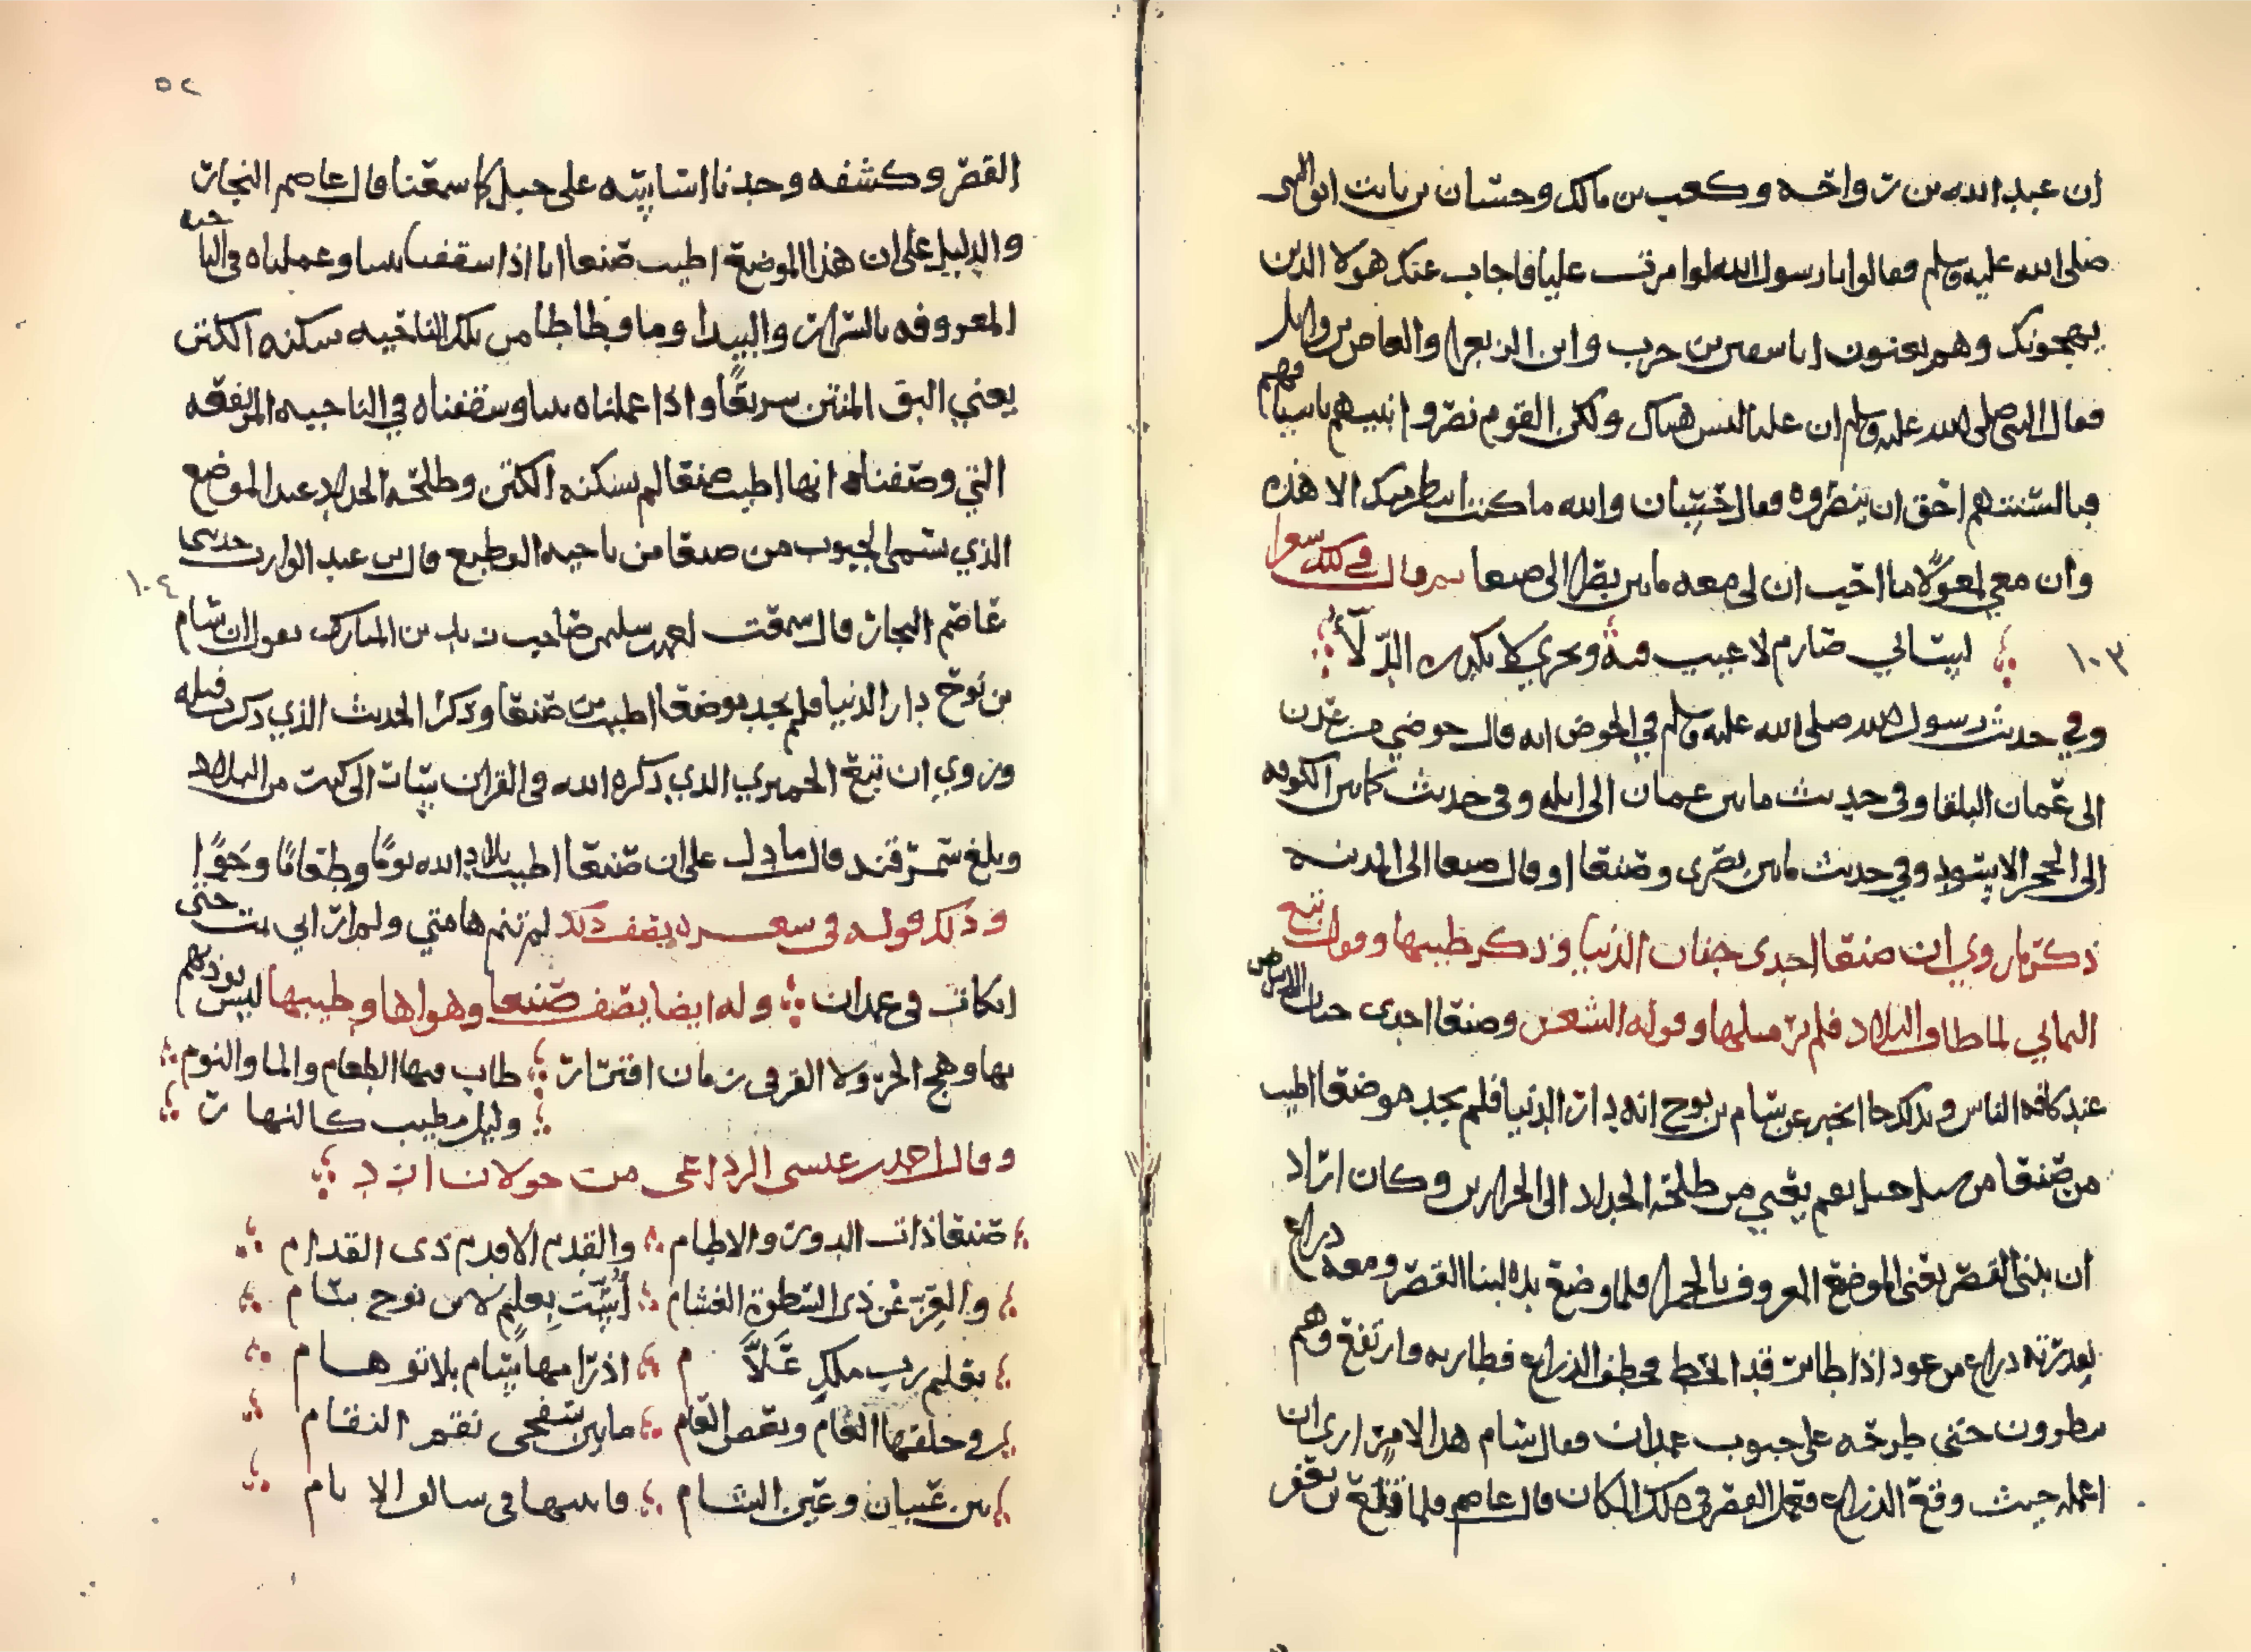 ان عبد الله بن رواحه وكعب بن مالك وحسان بن ثابت اتوا النبي
صلى الله عليه وسلم فقالوا يا رسول الله لوا مرت عليا فاجاب عنك هولا الذين
يهجونك وهم يعنون ابا سفين بن حرب وابن الزبعرا والعاص بن وايل
فقال النبي صلى الله عليه وسلم ان عليا ليس هناك ولكن القوم نصروا نبيهم باسيافهم
فبالسنتهم احق ان ينصروه فقال حسان والله ما كنت انتظر منك الا هذه
وان معي لمعولا ما احب ان لي معه ما بين بصرا الى صنعا ثم قال في ذلك شعرا
١٠٣ لساني صارم لا عيب فيه وبحري لا تكدره الدلا
وفي حديث رسول الله صلى الله عليه وسلم في الحوض انه قال حوضي من عدن
الى عمان البلقا وفي حديث ما بين عمان الى ايله وفي حديث كما بين الكوفه
الى الحجر الاسود وفي حديث ما بين بصرى وصنعا او قال صنعا الى المدينه
ذكر ما روي ان صنعا احدى جنان الدنيا وذكر طيبها وقول تبع
اليماني لما طاف البلاد فلم ير مثلها وقوله الشعر وصنعا احدى جنان الارض
عند كافه الناس وبذلك جا الخبر عن سام بن نوح انه دار الدنيا فلم يجد موضعا اطيب
من صنعا من سل جبل نعم يعني من طلحة الحداد الى الحرارين وكان اراد
ان يبني القصر يعني الموضع المعروف بالحمرا فلما وضع يده لبنا القصر ومعه ذراع
بعد رته ذراع من عود اذا طاير قد انحط فخطف الذراع فطار به وارتفع وهم
ينظرون حتى طرحه على جبوب غمدان فقال سام هذا لامر ارى ان
اعمله حيث وقع الذراع فعمل القصر في ذلك المكان قال عاصم فلما قلع بن يعفر
٥٢
القصر وكشفه وجدنا اساسه على جبل كما سمعنا قال عاصم النجار
والدليل على ان هذا الموضع اطيب صنعا انا اذا سقفنا بيتا وعملناه في الناحيه
المعروفه بالسرار والبيدا وما وطاطا من تلك الناحيه سكنه الكتن
يعني البق المنتن سريعا واذا عملناه بيتا وسقفناه في الناحيه المرتفعه
التي وصفناه انها اطيب صنعا لم يسكنه الكتن وطلحة الحداد عند الموضع
الذي يسمى الجبوب من صنعا من ناحيه القطيع قال بن عبد الوارث حدثني
١٠٤ عاصم النجار قال سمعت محمد بن سليمن صاحب زيد بن المبارك يقول ان سام
بن نوح دار الدنيا فلم يجد موضعا اطيب من صنعا وذكر الحديث الذي ذكر قبله
وروي ان تبع الحميري الذي ذكره الله في القران سار الى كهت من البلاد
وبلغ سمرقند قال ما دل على ان صنعا اطيب بلاد الله نوما وطعاما وجوا
وذلك قوله في شعره يصف ذلك لم تنم هامتي ولم ار اني نمت حتى
اتكات في غمدان وله ايضا يصف صنعا وهواها وطيبها ليس يوذيهم
بها وهج الحر ولا القر في زمان افترار طاب فيها الطعام والما والنوم
وليل مطيب كالنهار
وقال احمد بن عيسى الرداعي من خولان ازد
صنعا ذات الدور والاطام والقدم الاقدم ذى القدام
والعز عن ذى السطوة الغشام اسست بعلم لابن نوح سام
بعلم رب ملك علا م اذ رامها سام بلا توهام
في وحلقها العام وبعض العام ما بين سفحى نقم النقام
بين عيبان وعين الشام فابتناها في سالف الايام